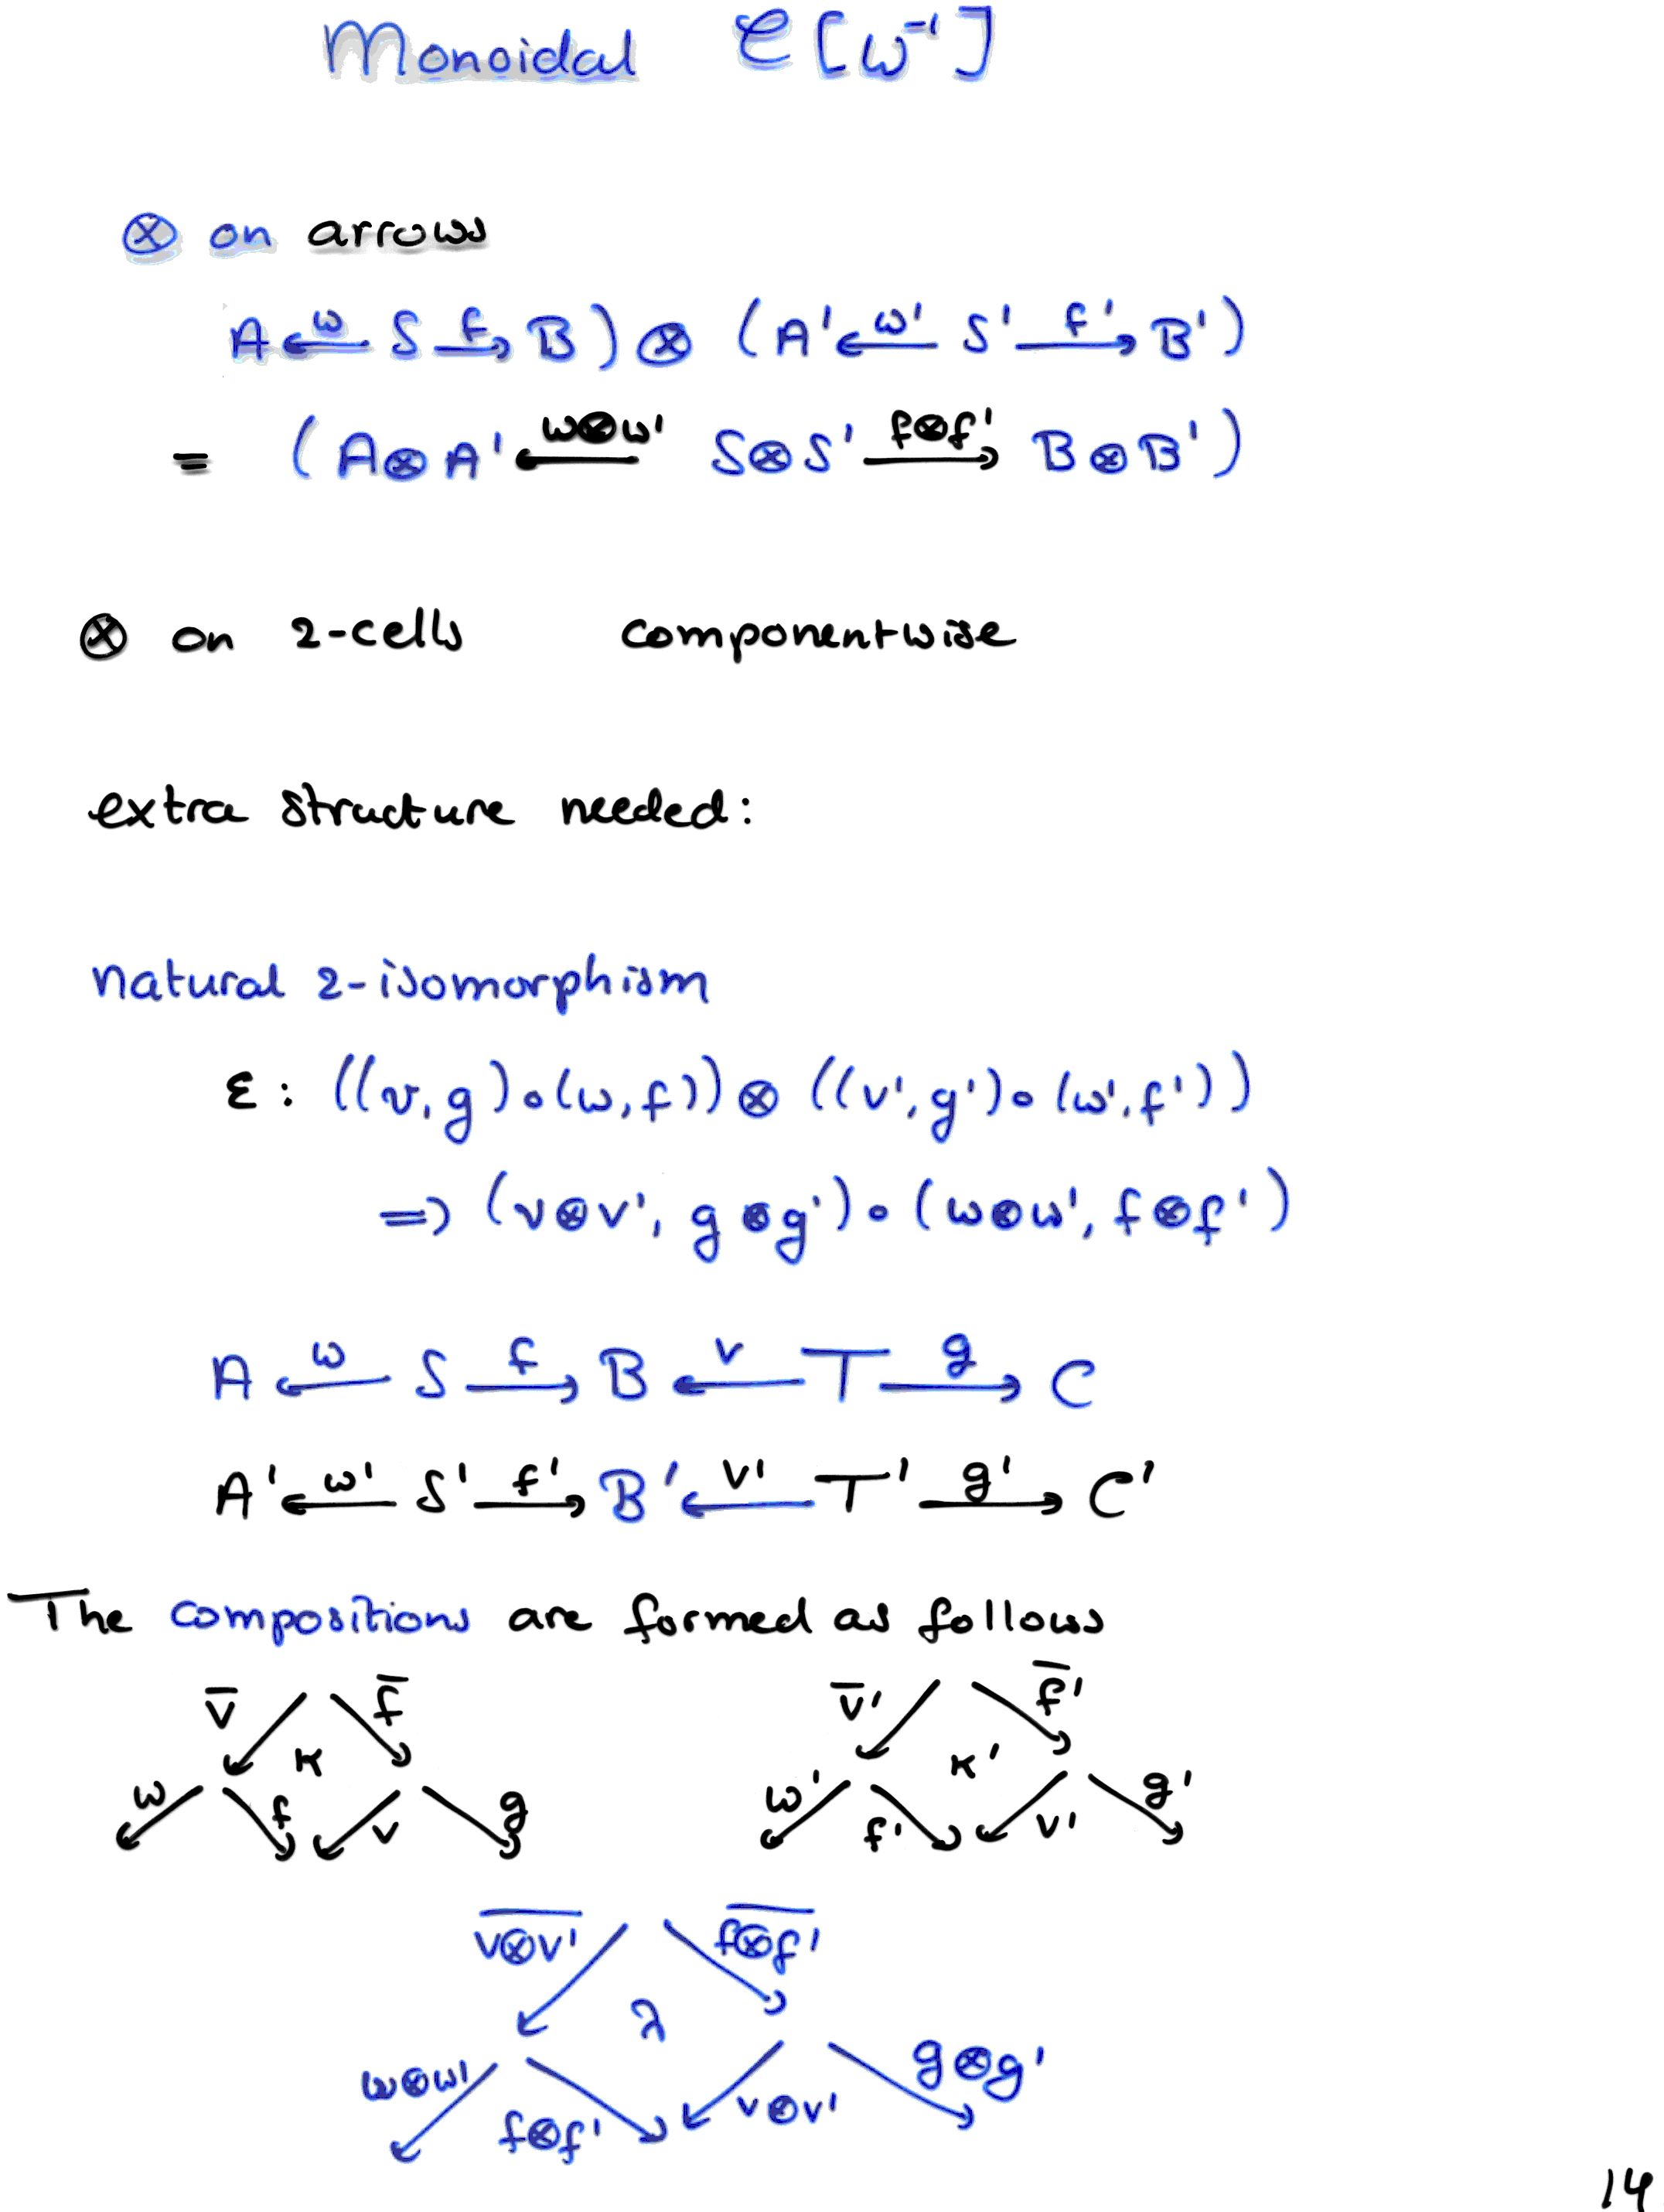 Monoidal 𝒞[W⁻¹]
⊗ on arrows
A ←w– S –f→ B) ⊗ (A' ←w'– S' –f'→ B')
= (A⊗A' ←w⊗w'– S⊗S' –f⊗f'→ B⊗B')
⊗ on 2-cells componentwise
extra structure needed:
natural 2-isomorphism
ε: ((v,g)∘(w,f)) ⊗ ((v',g')∘(w',f'))
⇒ (v⊗v', g⊗g')∘(w⊗w', f⊗f')
A ←w– S –f→ B ←v– T –g→ C
A' ←w'– S' –f'→ B' ←v'– T' –g'→ C'
The compositions are formed as follows
v̅ f̅ v̅' f̅'
κ κ'
w f v g w' f' v' g'
\overline{v⊗v'} \overline{f⊗f'}
λ
w⊗w' f⊗f' v⊗v' g⊗g'
14